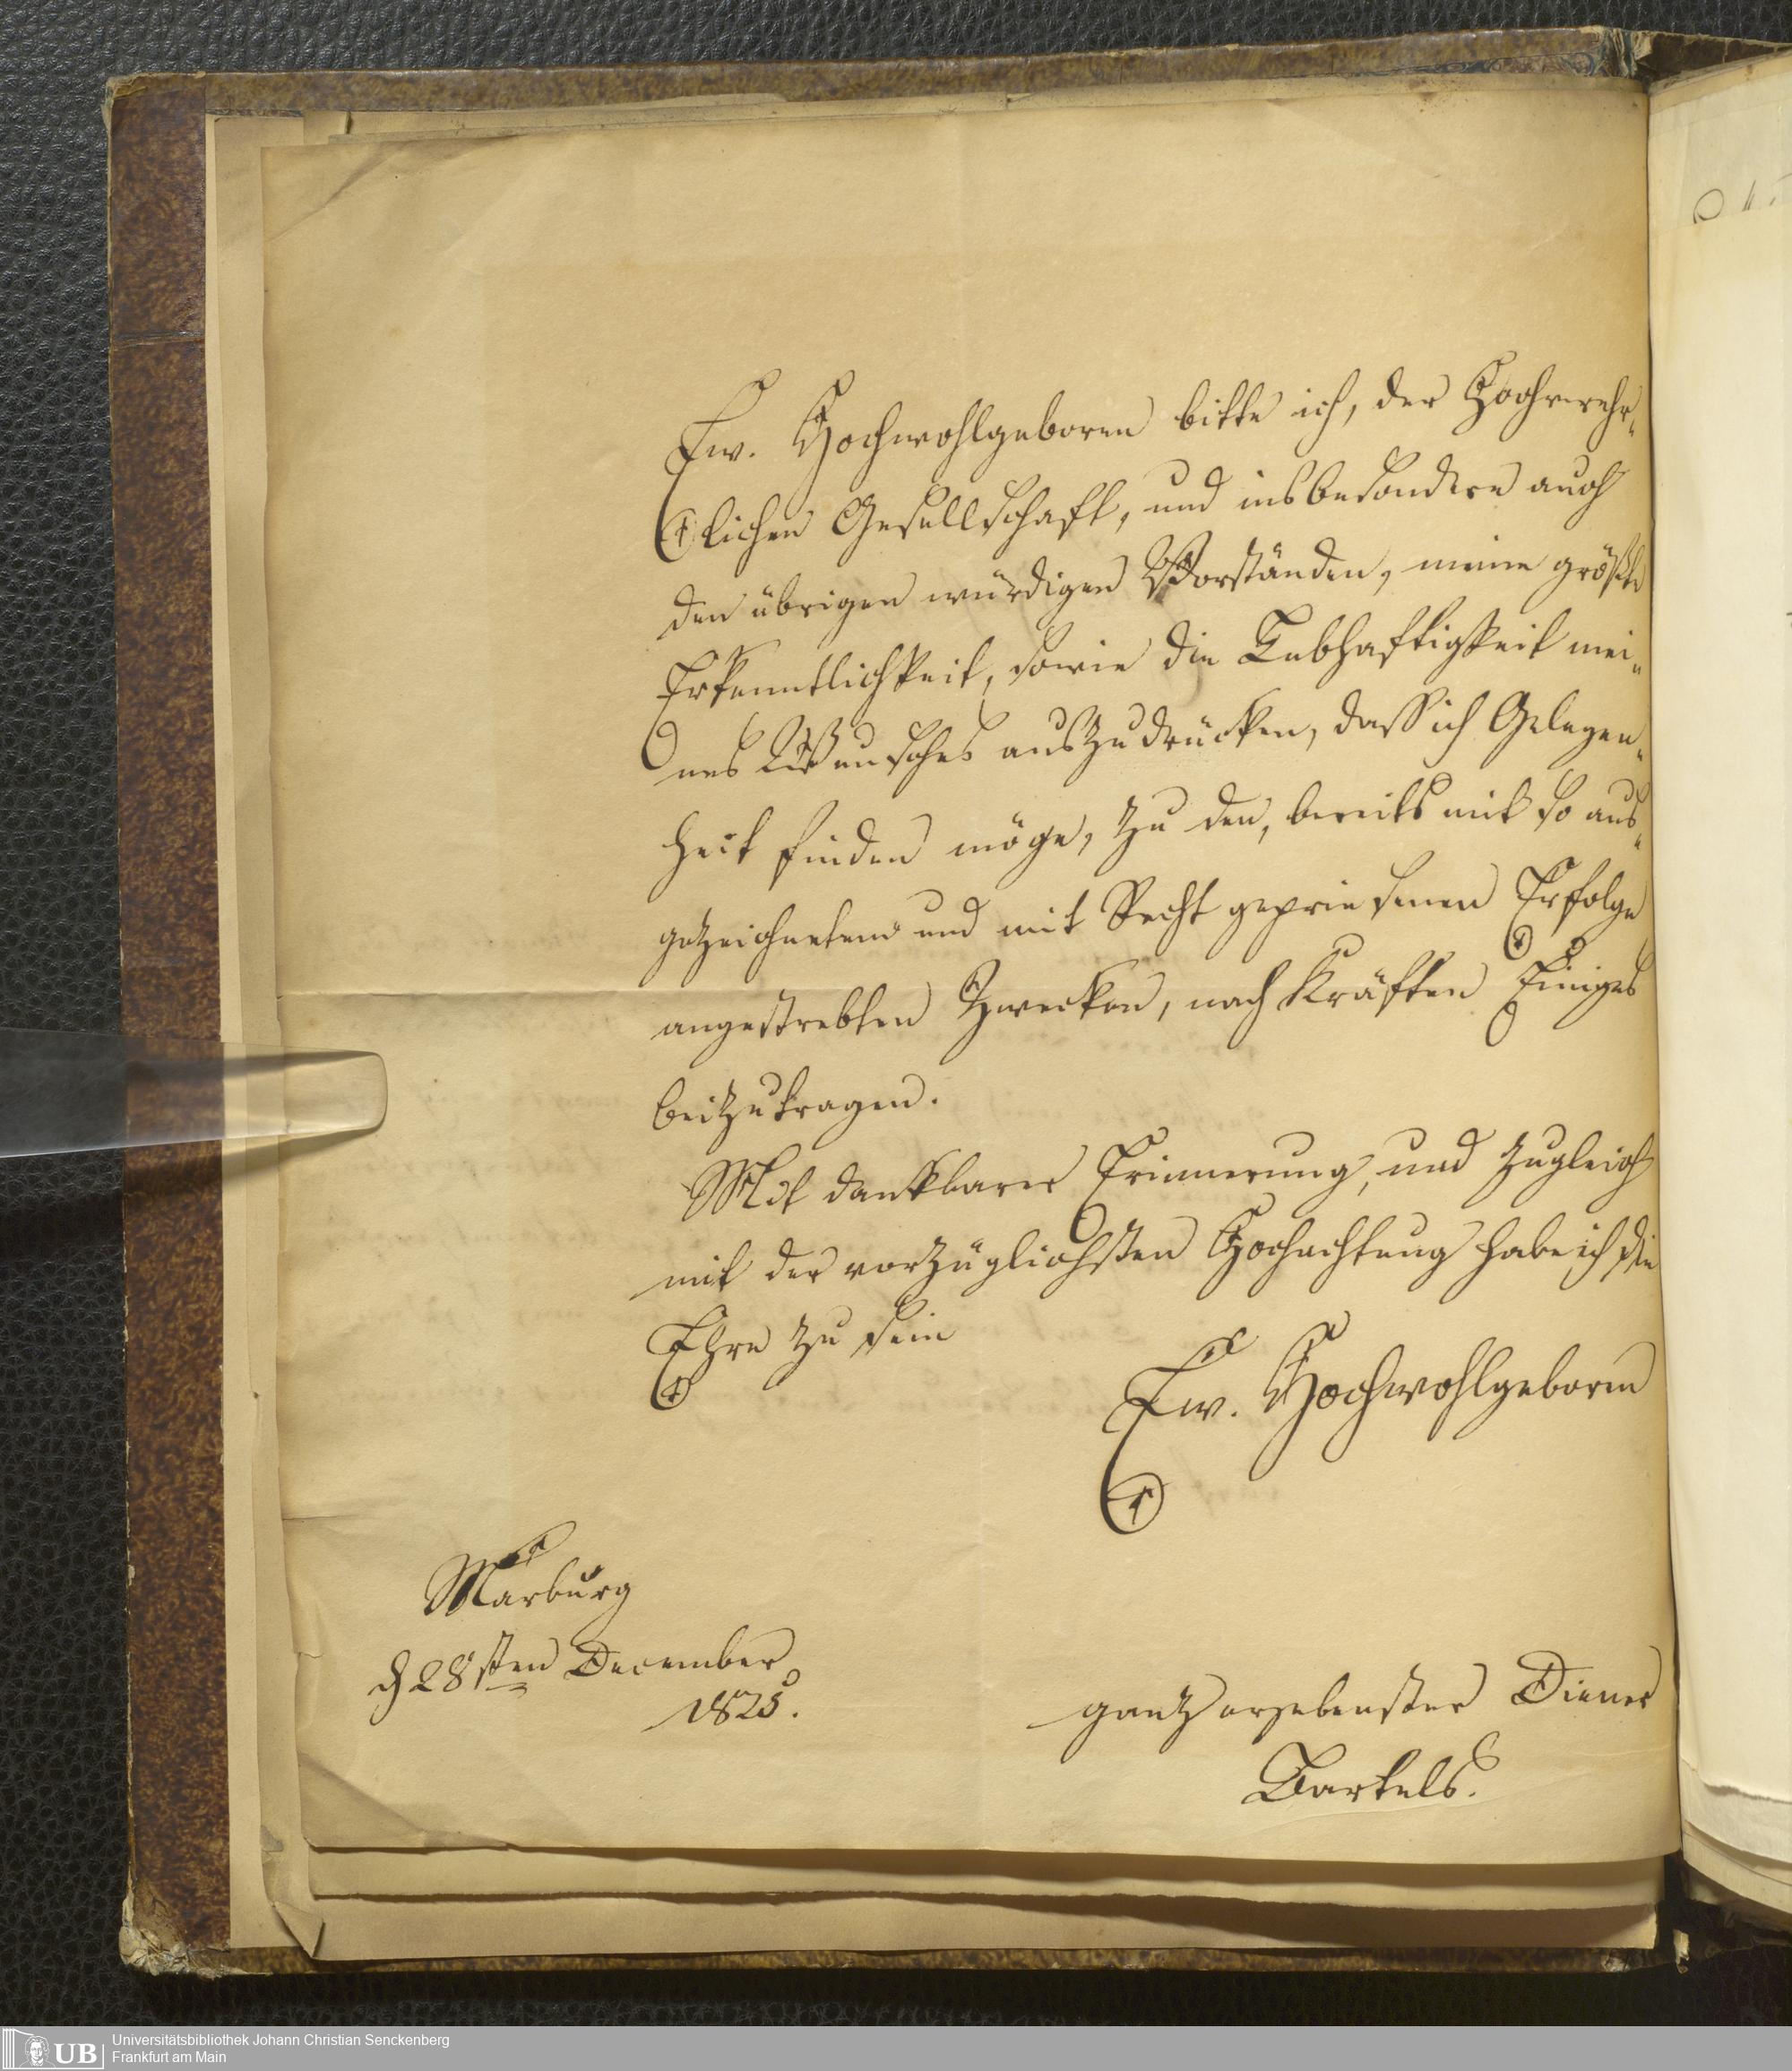 Ew. Hochwohlgeboren bitte ich, der Hochverehr-
lichen Gesellschaft, und insbesondere auch
den übrigen würdigen Vorständen, meine größte
Erkenntlichkeit, sowie die Lebhaftigkeit mei-
nes Wunsches auszudrücken, dass ich Gelegen-
heit finden möge, zu den, bereits mit so aus-
gezeichnetem und mit Recht gepriesenen Erfolge
angestrebten Zwecken, nach Kräften Einiges
beizutragen.
Mit dankbarer Erinnerung, und zugleich
mit der vorzüglichsten Hochachtung habe ich die
Ehre zu sein
Ew. Hochwohlgeboren
Marburg
d 28sten December
1825.
ganz ergebenster Diener
Bartels.
UB
Universitätsbibliothek Johann Christian Senckenberg
Frankfurt am Main